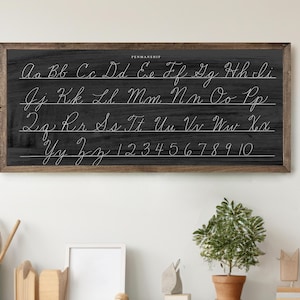 PENMANSHIP
Aa Bb Cc Dd Ee Ff Gg Hh Ii
Jj Kk Ll Mm Nn Oo Pp
Qq Rr Ss Tt Uu Vv Ww Xx
Yy Zz 1 2 3 4 5 6 7 8 9 10